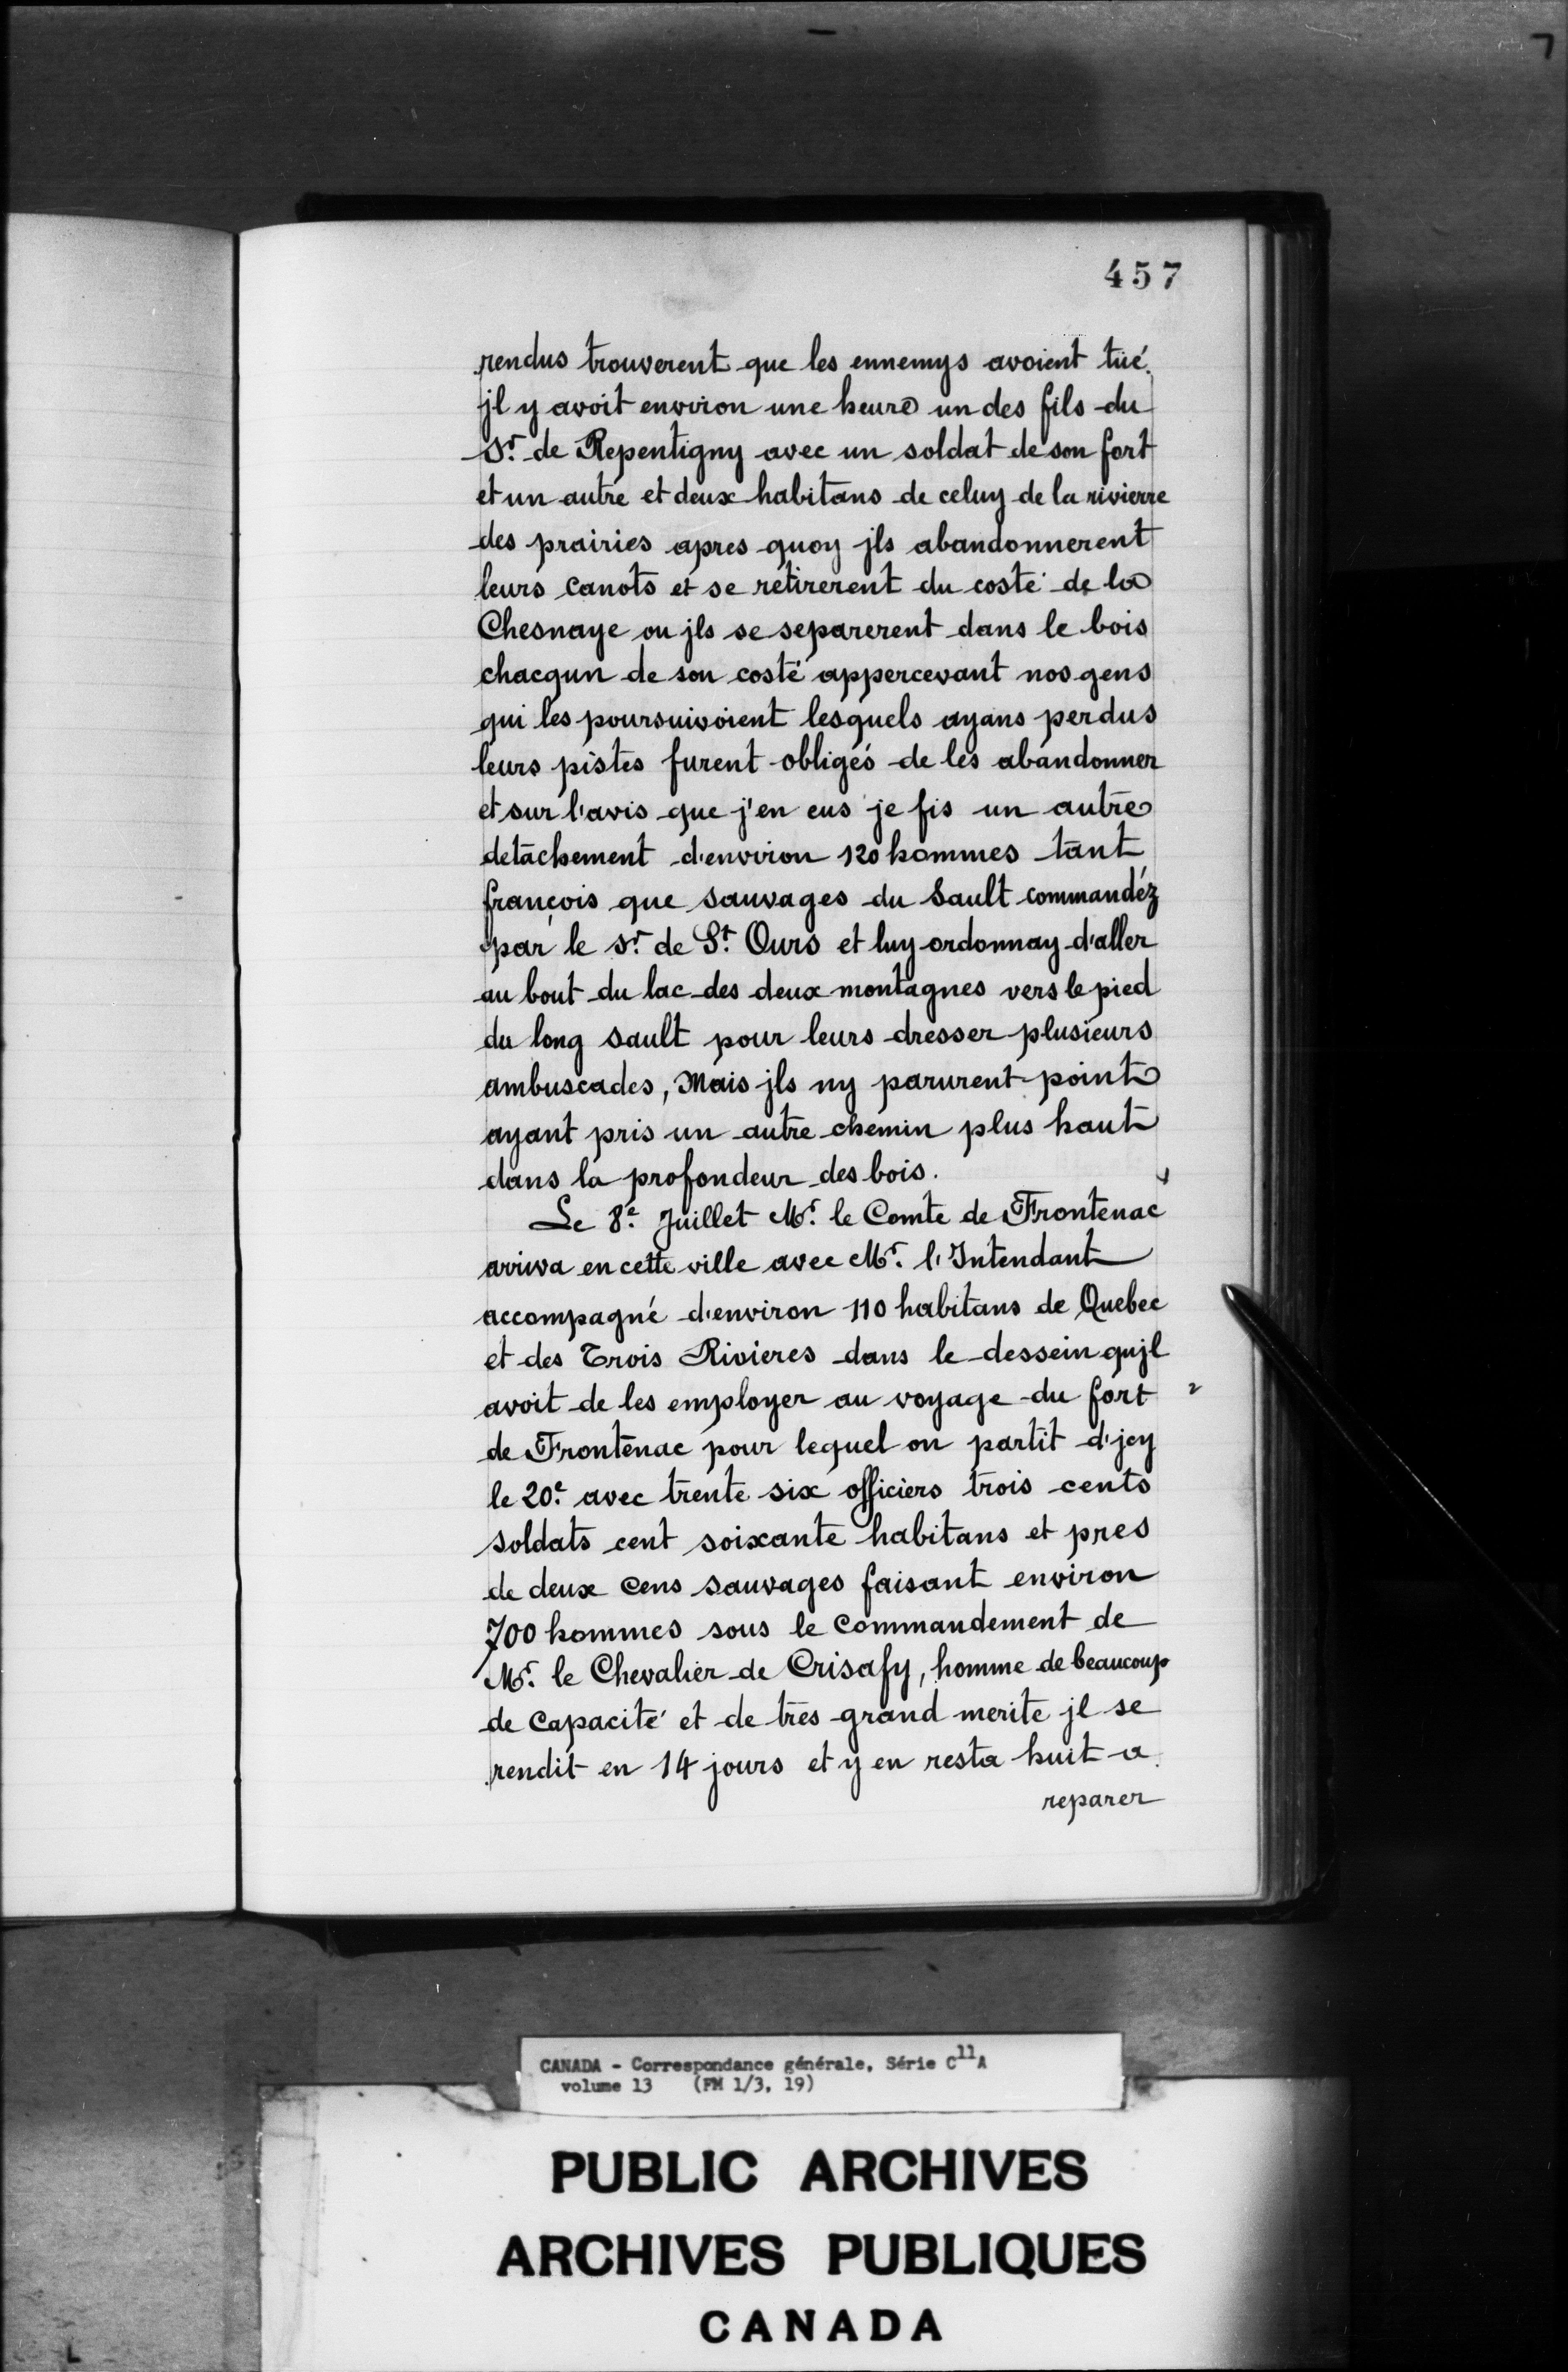 457
rendus trouverent que les ennemys avoient tüé
jl y avoit environ une heure un des fils du
Sr. de Repentigny avec un soldat de son fort
et un autre et deux habitans de celuy de la rivierre
des prairies apres quoy jls abandonnerent
leurs canots et se retirerent du costé de la
Chesnaye ou jls se separerent dans le bois
chacqun de son costé appercevant nos gens
qui les poursuivoient lesquels ayans perdus
leurs pistes furent obligés de les abandonner
et sur l'avis que j'en eus je fis un autre
detachement d'environ 120 hommes tant
françois que sauvages du Sault commandéz
par le Sr. de St. Ours et luy ordonnay d'aller
au bout du lac des deux montagnes vers le pied
du long sault pour leurs dresser plusieurs
ambuscades, Mais jls ny parurent point
ayant pris un autre chemin plus haut
dans la profondeur des bois.
Le 8e. Juillet Mr. le Comte de Frontenac
arriva en cette ville avec Mr. l'Intendant
accompagné d'environ 110 habitans de Quebec
et des Trois Rivieres dans le dessein qujl
avoit de les employer au voyage du fort
de Frontenac pour lequel on partit d'jcy
le 20e. avec trente six officiers trois cents
soldats cent soixante habitans et pres
de deux cens sauvages faisant environ
700 hommes sous le Commandement de
Mr. le Chevalier de Crisafy, homme de beaucoup
de Capacité et de tres grand merite jl se
rendit en 14 jours et y en resta huit a
reparer
CANADA - Correspondance générale, Série C11A
volume 13 (FM 1/3, 19)
PUBLIC ARCHIVES
ARCHIVES PUBLIQUES
CANADA